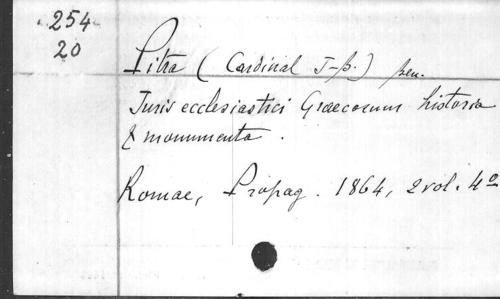 254
20
Pitra (Cardinal J-B.)
Juris ecclesiastici Graecorum historia
& monumenta.
Romae, Propag. 1864, 2 vol. 4º